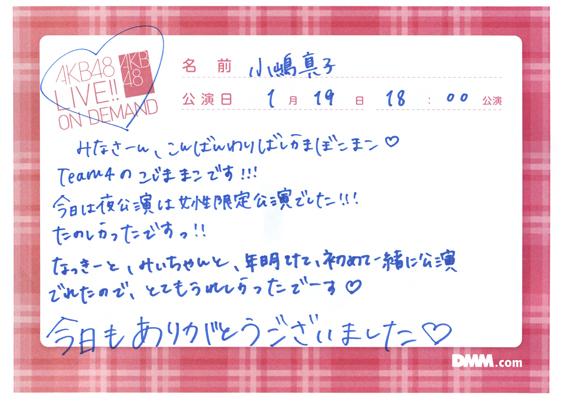 AKB48
LIVE!!
ON DEMAND
AKB
48
名前 小嶋真子
公演日 1月19日 18:00公演
みなさーん、こんばんわりばしかまぼこまこ♡
Team4のこじままこです!!!
今日は夜公演は女性限定公演でした!!!
たのしかったですっ!!
なっきーと、みぃちゃんと、年明けて、初めて一緒に公演
でれたので、とてもうれしかったでーす♡
今日もありがとうございました♡
DMM.com